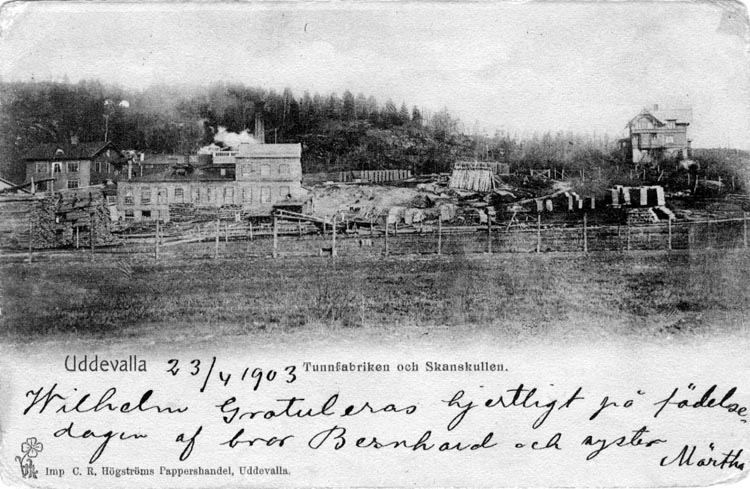 Uddevalla 23/4 1903 Tunnfabriken och Skanskullen.
Wilhelm Gratuleras hjertligt på födelse-
dagen af bror Bernhard och syster
Märtha
Imp C. R. Högströms Pappershandel, Uddevalla.